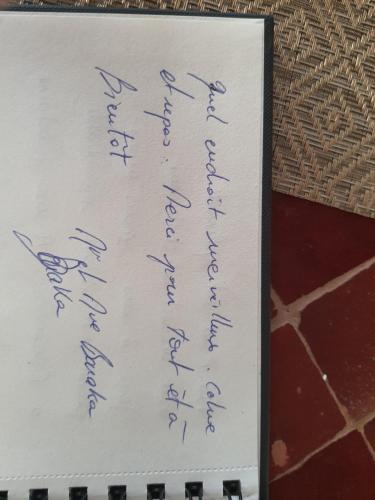 Quel endroit merveilleux. Calme
et repos. Merci pour tout et à
Bientôt
Mr et Mme Baraka